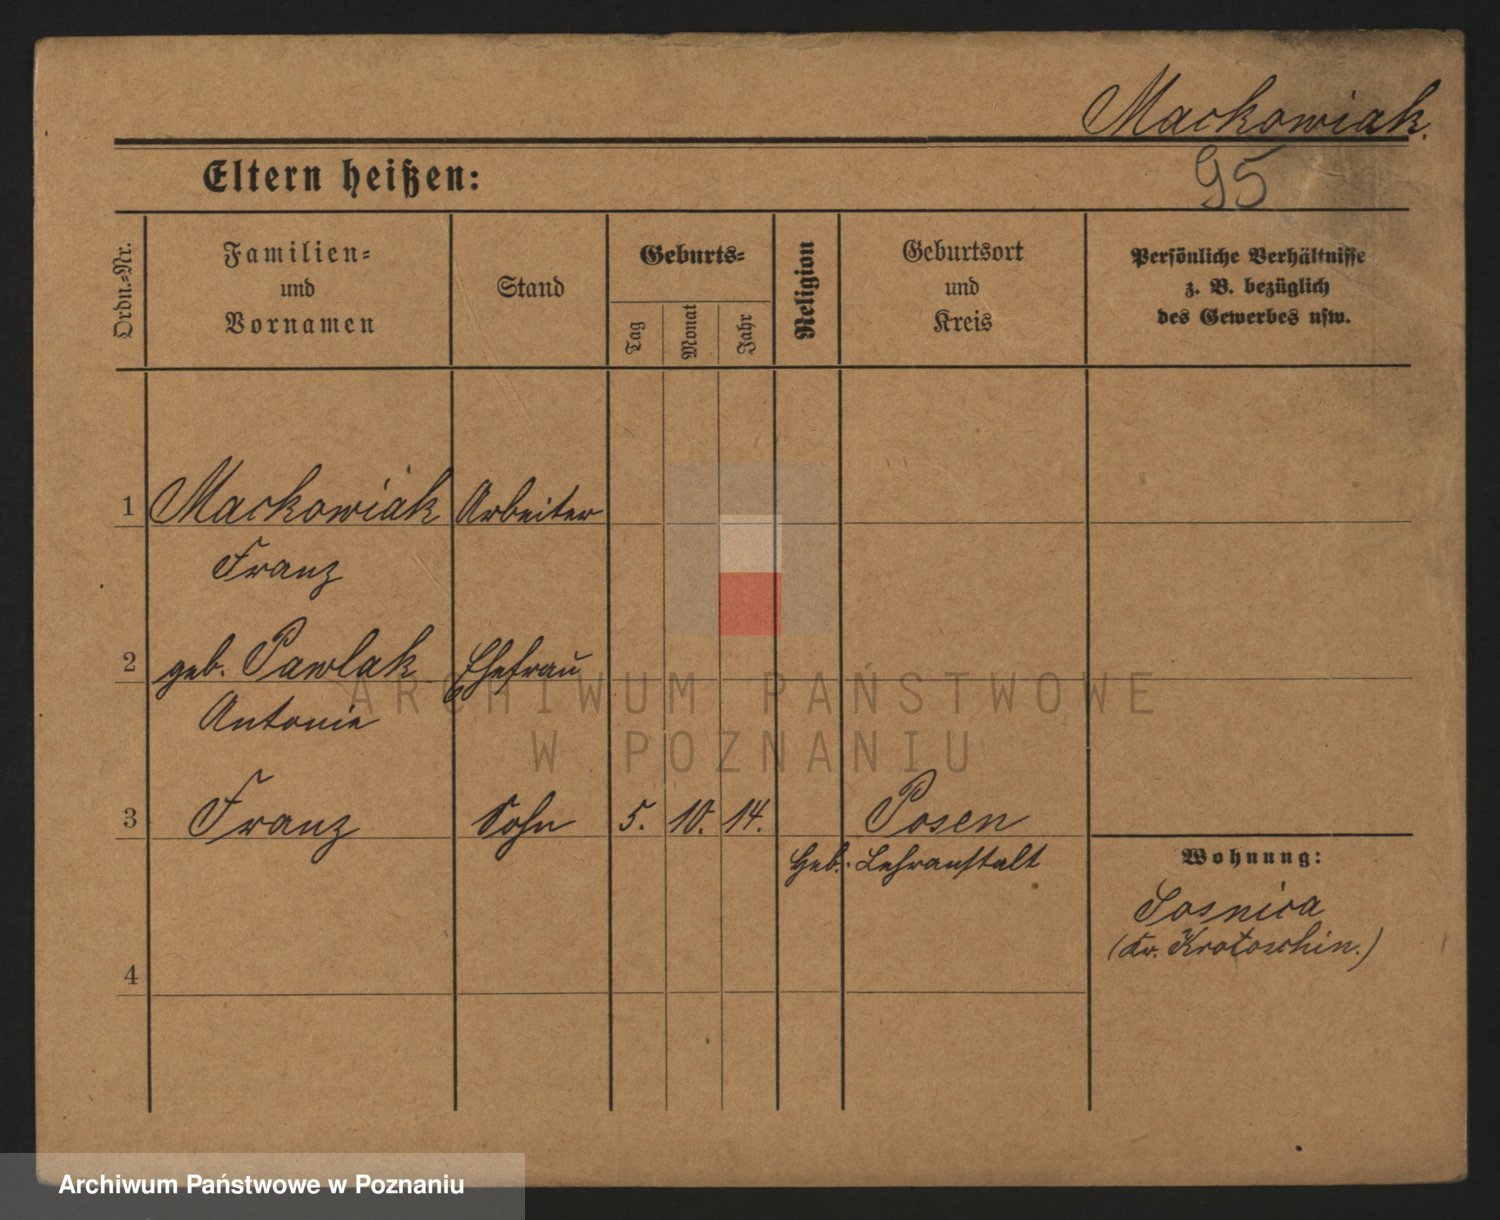 Mackowiak.
95
Eltern heißen:
Ordn.=Nr.
Familien=
und
Vornamen
Stand
Geburts=
Tag
Monat
Jahr
Religion
Geburtsort
und
Kreis
Persönliche Verhältnisse
z. B. bezüglich
des Gewerbes usw.
1 Mackowiak Arbeiter
Franz
2 geb. Pawlak Ehefrau
Antonie
3 Franz Sohn 5. 10. 14. Posen
Geb. Lehranstalt
Wohnung:
Sosnica
(Kr. Krotoschin.)
4
ARCHIWUM PAŃSTWOWE
W POZNANIU
Archiwum Państwowe w Poznaniu